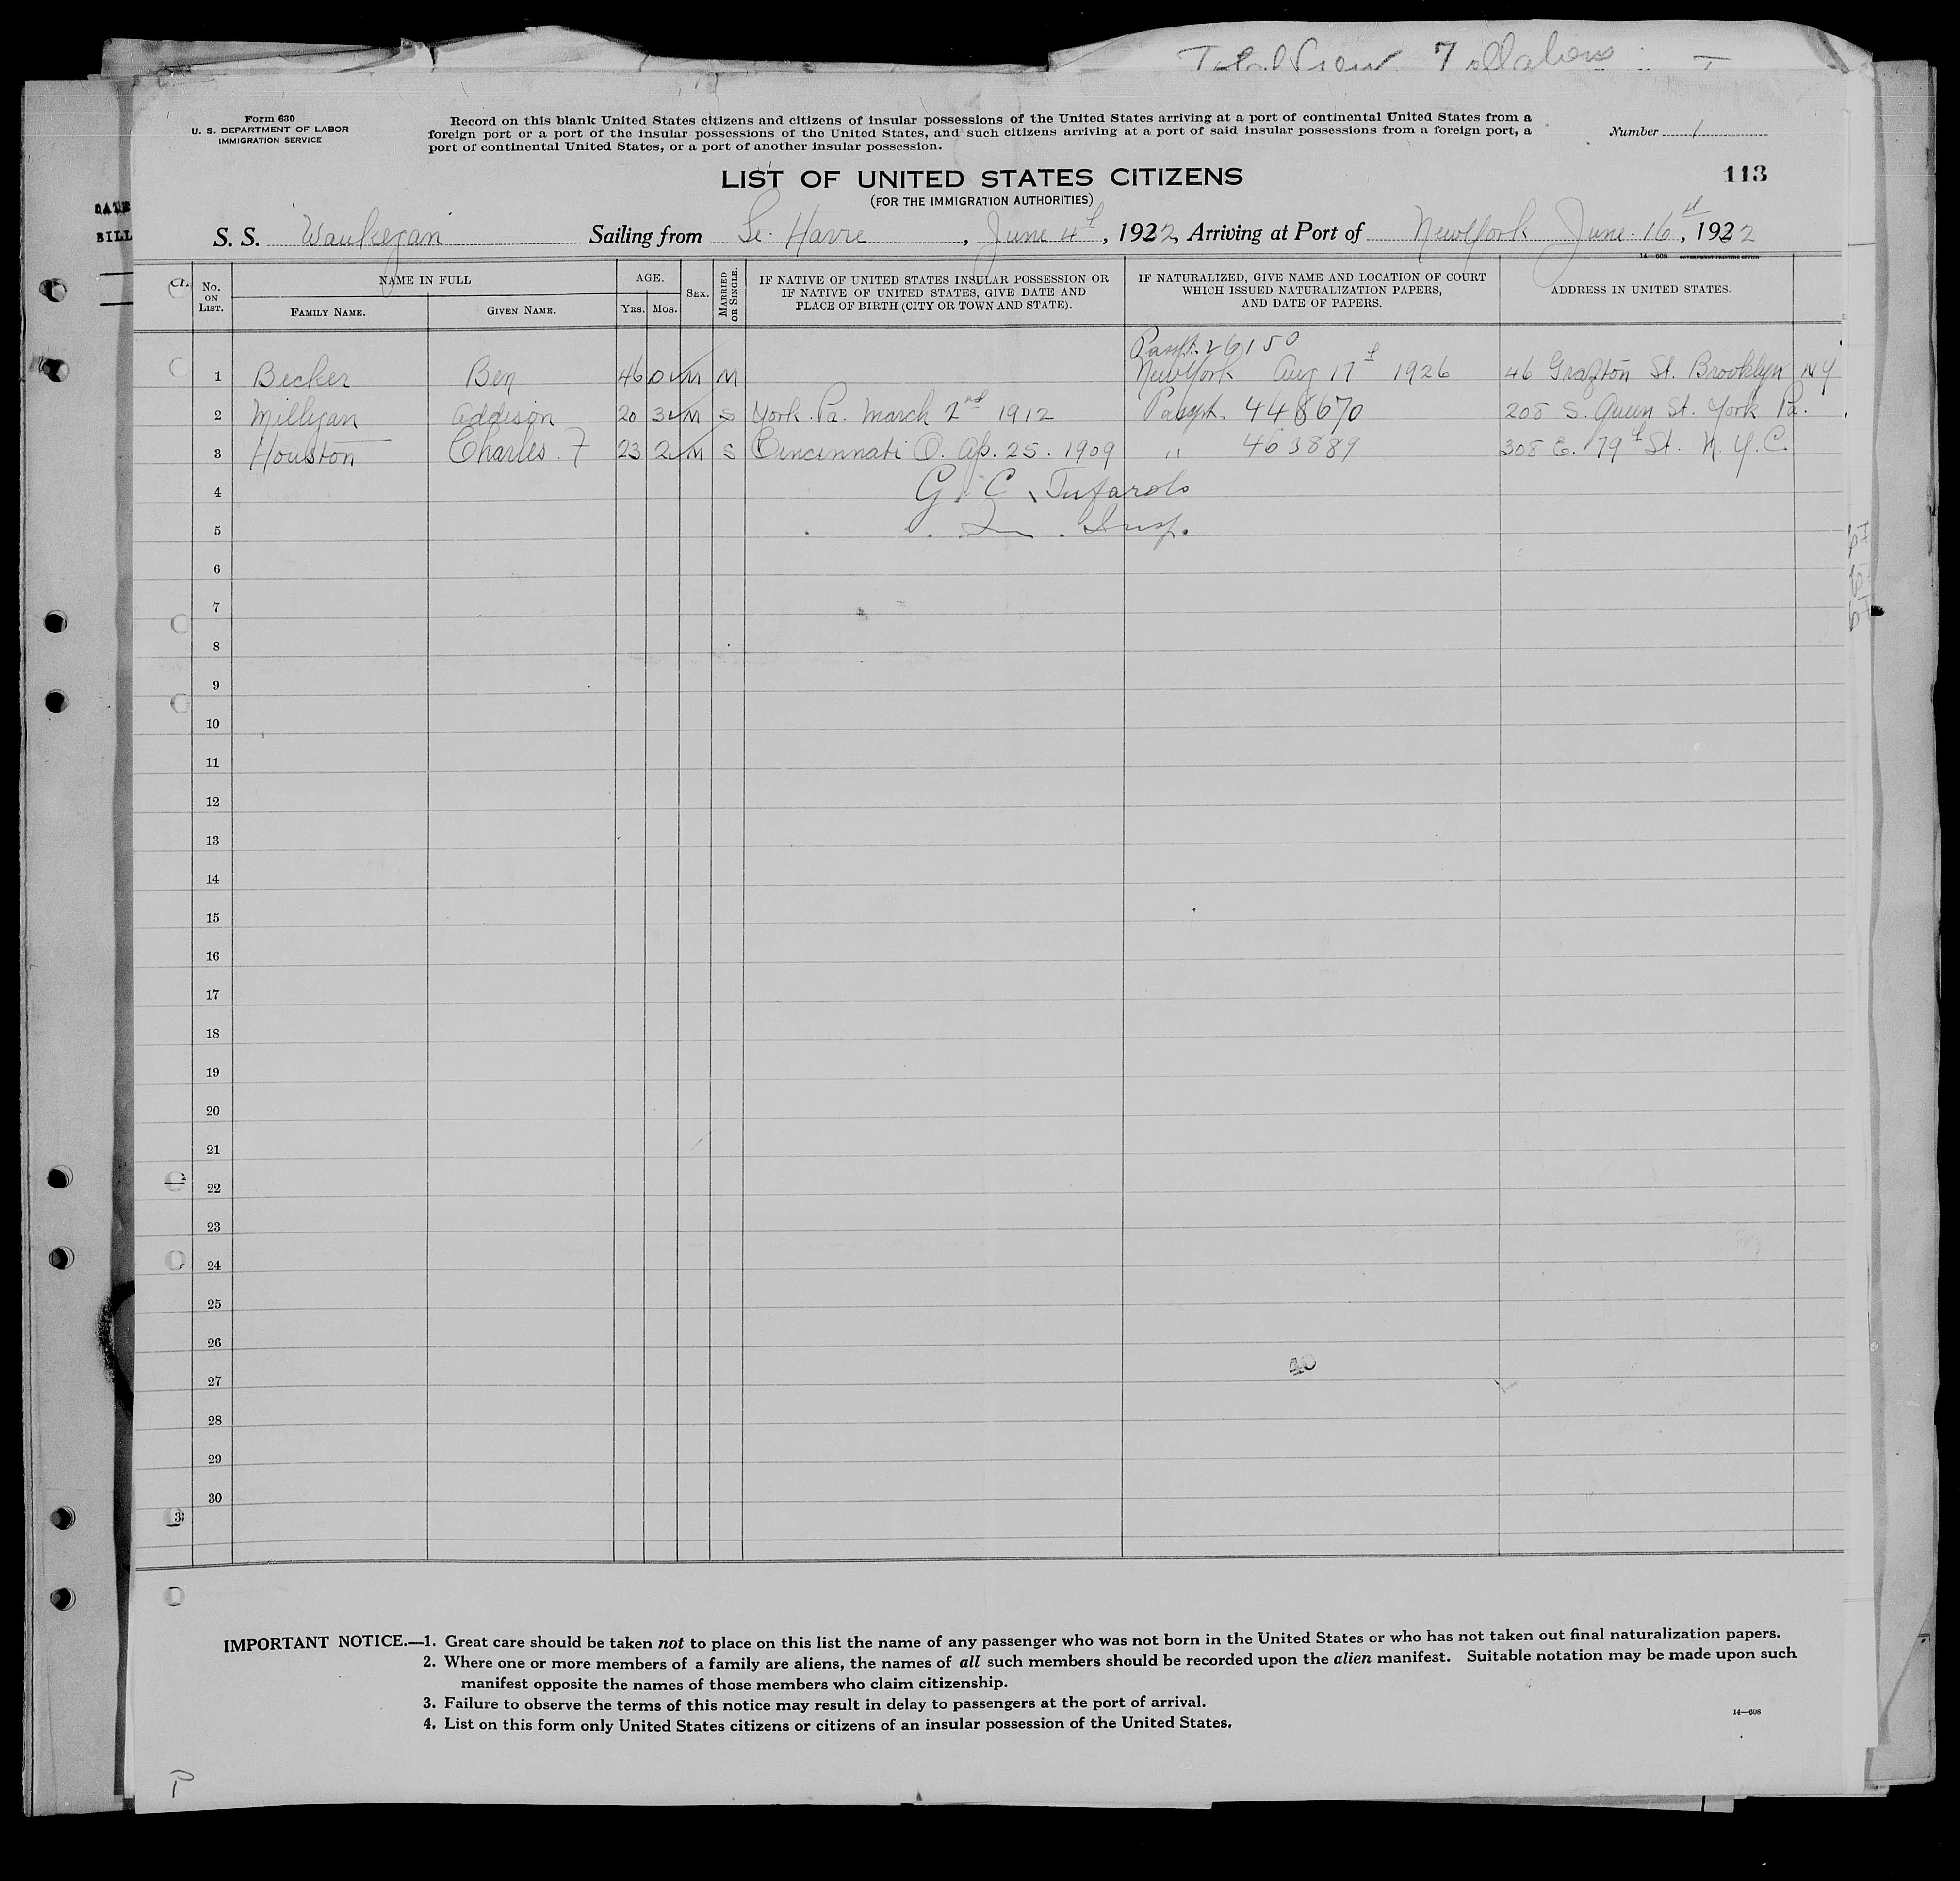 Form 630
U. S. DEPARTMENT OF LABOR
IMMIGRATION SERVICE
Record on this blank United States citizens and citizens of insular possessions of the United States arriving at a port of continental United States from a
foreign port or a port of the insular possessions of the United States, and such citizens arriving at a port of said insular possessions from a foreign port, a
port of continental United States, or a port of another insular possession.
Number 1
113
LIST OF UNITED STATES CITIZENS
(FOR THE IMMIGRATION AUTHORITIES)
DATE
BILL
S. S. Waukegan Sailing from Le Havre, June 4th, 1932, Arriving at Port of New York June 16th, 1932
14—608 GOVERNMENT PRINTING OFFICE
No. ON LIST.
NAME IN FULL
FAMILY NAME.
GIVEN NAME.
AGE.
YRS.
MOS.
SEX.
MARRIED OR SINGLE.
IF NATIVE OF UNITED STATES INSULAR POSSESSION OR
IF NATIVE OF UNITED STATES, GIVE DATE AND
PLACE OF BIRTH (CITY OR TOWN AND STATE).
IF NATURALIZED, GIVE NAME AND LOCATION OF COURT
WHICH ISSUED NATURALIZATION PAPERS,
AND DATE OF PAPERS.
ADDRESS IN UNITED STATES.
Passpt. 26150
1 Becker Ben 46 0 M M New York Aug 17th 1926 46 Grafton St. Brooklyn NY
2 Milligan Addison 20 3 M S York. Pa. March 2nd 1912 Passpt. 448670 208 S. Queen St. York Pa.
3 Houston Charles. F 23 2 M S Cincinnati O. Ap. 25. 1909 " 463889 308 E. 79th St. N. Y. C.
4 G. C. Tufarolo
5 Insp.
6
7
8
9
10
11
12
13
14
15
16
17
18
19
20
21
22
23
24
25
26
27
28
29
30
IMPORTANT NOTICE.—1. Great care should be taken not to place on this list the name of any passenger who was not born in the United States or who has not taken out final naturalization papers.
2. Where one or more members of a family are aliens, the names of all such members should be recorded upon the alien manifest. Suitable notation may be made upon such
manifest opposite the names of those members who claim citizenship.
3. Failure to observe the terms of this notice may result in delay to passengers at the port of arrival.
4. List on this form only United States citizens or citizens of an insular possession of the United States.
14—608